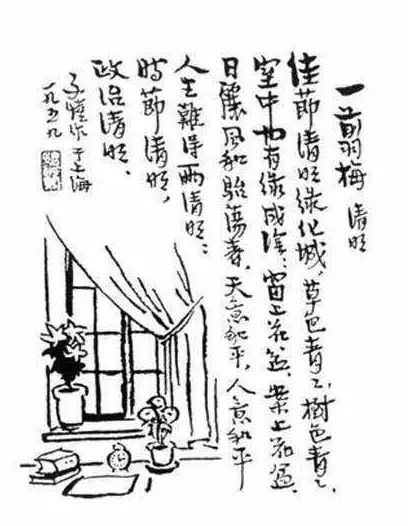 一剪梅 清明
佳節清明綠化城,草色青々,樹色青々,
室中也有綠成陰:窗上花盆,案上花盆、
日麗風和駘蕩春,天意和平,人意和平
人生難得兩清明:
時節清明,
政治清明、
子愷作于上海
一九五九